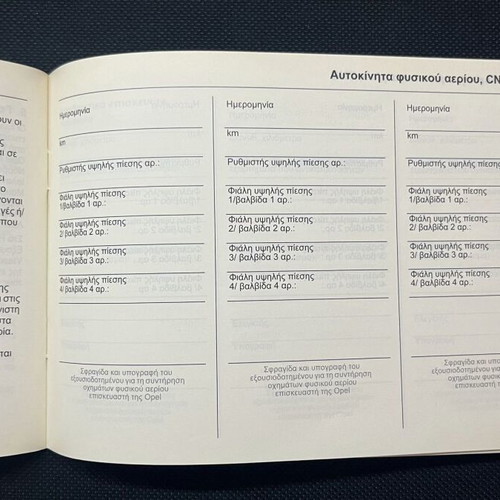 Αυτοκίνητα φυσικού αερίου, CN
ουν οι
ς
αι σε
ει
το
νονται
γές ή/
που
ης
α στις
γιστη
στα
ρία.
εται
Ημερομηνία
km
Ρυθμιστής υψηλής πίεσης αρ.:
Φιάλη υψηλής πίεσης
1/βαλβίδα 1 αρ.:
Φιάλη υψηλής πίεσης
2/ βαλβίδα 2 αρ.:
Φιάλη υψηλής πίεσης
3/ βαλβίδα 3 αρ.:
Φιάλη υψηλής πίεσης
4/ βαλβίδα 4 αρ.:
Σφραγίδα και υπογραφή του
εξουσιοδοτημένου για τη συντήρηση
οχημάτων φυσικού αερίου
επισκευαστή της Opel
Ημερομηνία
km
Ρυθμιστής υψηλής πίεσης αρ.:
Φιάλη υψηλής πίεσης
1/βαλβίδα 1 αρ.:
Φιάλη υψηλής πίεσης
2/ βαλβίδα 2 αρ.:
Φιάλη υψηλής πίεσης
3/ βαλβίδα 3 αρ.:
Φιάλη υψηλής πίεσης
4/ βαλβίδα 4 αρ.:
Σφραγίδα και υπογραφή του
εξουσιοδοτημένου για τη συντήρηση
οχημάτων φυσικού αερίου
επισκευαστή της Opel
Ημερομηνία
km
Ρυθμιστής υψηλής πίεσ
Φιάλη υψηλής πίεσης
1/βαλβίδα 1 αρ.:
Φιάλη υψηλής πίεσης
2/ βαλβίδα 2 αρ.:
Φιάλη υψηλής πίεσης
3/ βαλβίδα 3 αρ.:
Φιάλη υψηλής πίεσης
4/ βαλβίδα 4 αρ.:
Σφραγίδα και υπο
εξουσιοδοτημένου για τ
οχημάτων φυσικ
επισκευαστή τη